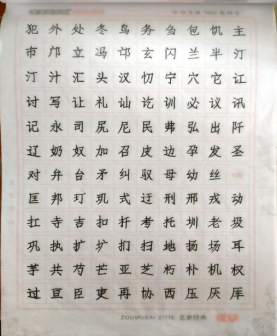 犯外处冬鸟务刍包饥主
市邝立冯邙玄闪兰半汀
汀汁汇头汉忉宁穴它讧
讨写让礼讪讫训必议讯
记永司尻尼民弗弘出阡
辽奶奴加召皮边孕发圣
对弁台矛纠驭母幼丝
匡邦玎玑式迂刑邢戎动
扛寺吉扣扦考托圳老圾
巩执扩扪扫地扬场耳
芋共芍芒亚芝朽朴机权
过亘臣吏再协西压厌厍